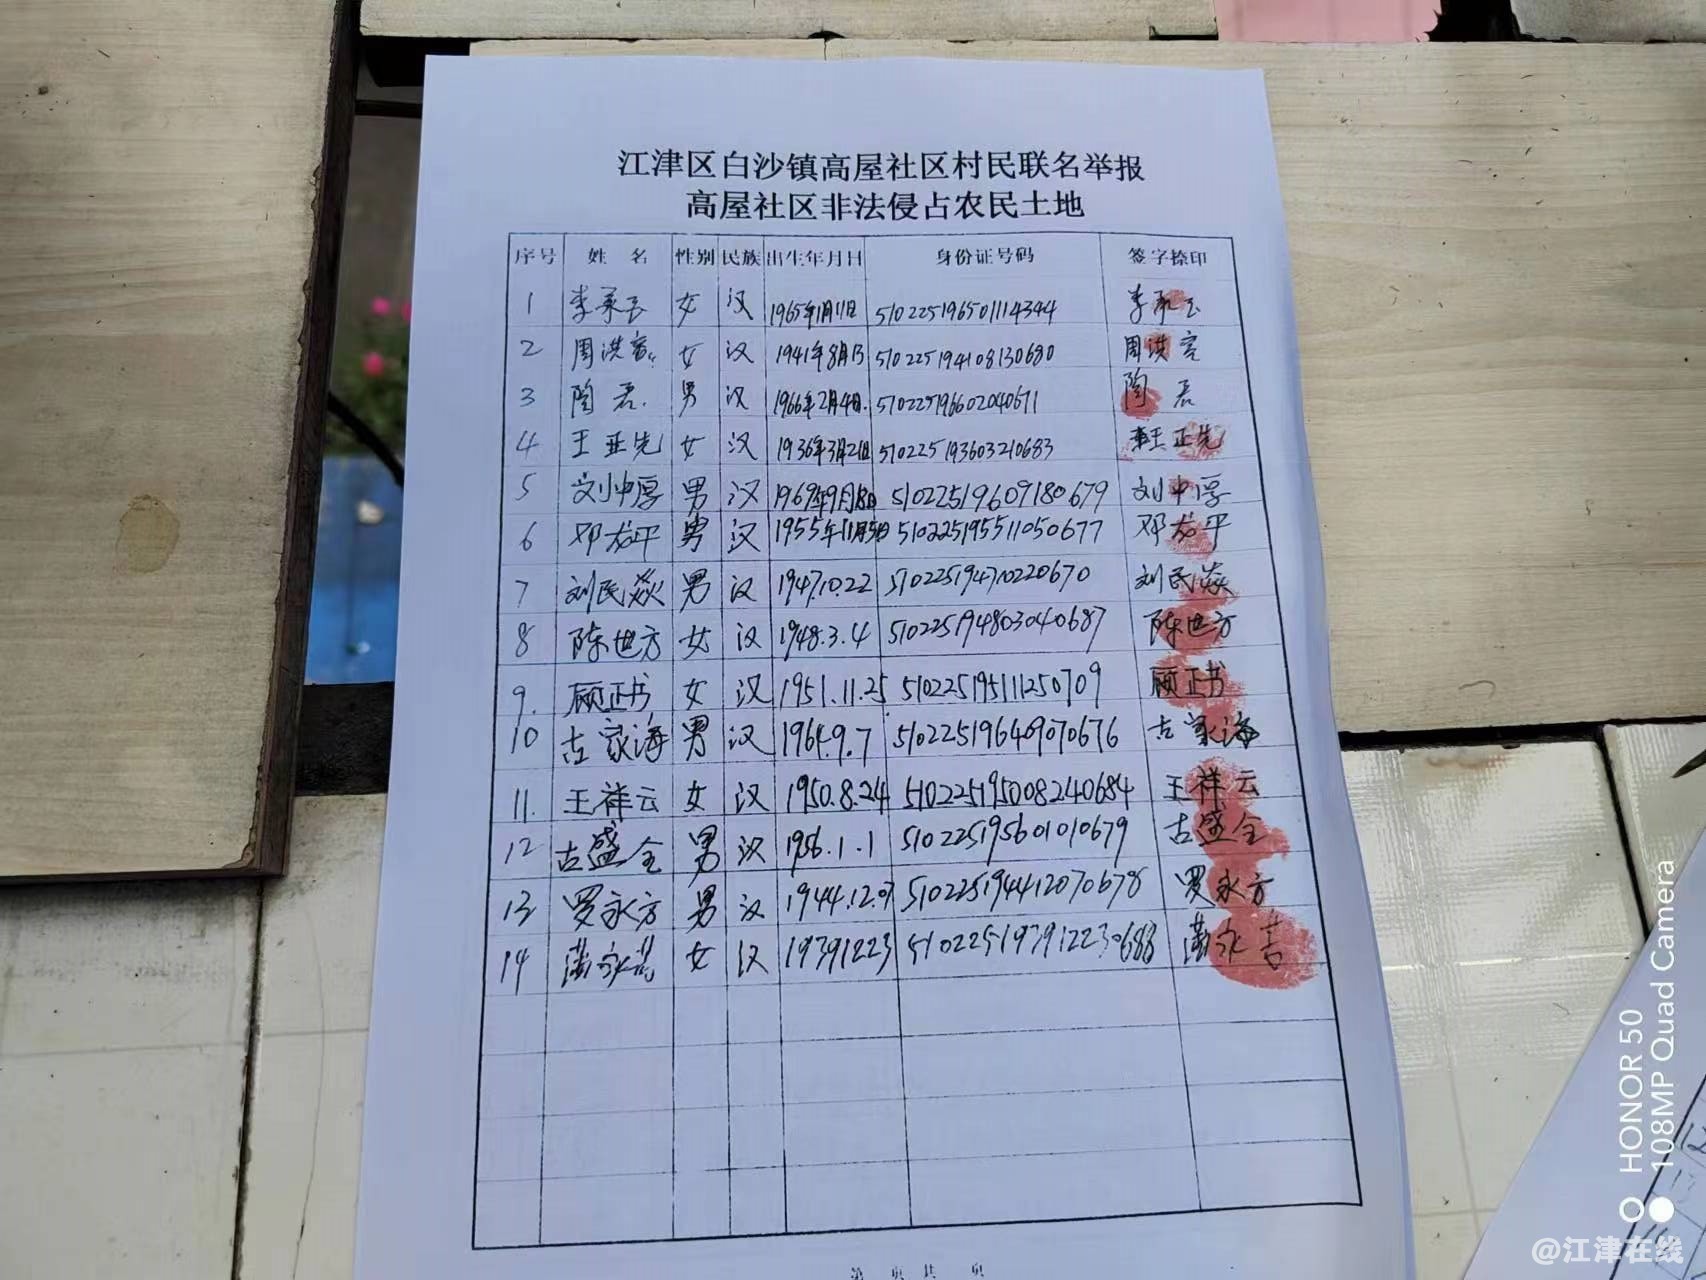 江津区白沙镇高屋社区村民联名举报
高屋社区非法侵占农民土地
序号 姓名 性别 民族 出生年月日 身份证号码 签字捺印
1 李 女 汉 1965年1月11日 510225196501114344 李
2 周洪 女 汉 1941年8月13 510225194108130680 周洪
3 陶 男 汉 1966年2月4日 510225196602040671 陶
4 王正先 女 汉 1936年3月21日 510225193603210683 王正先
5 刘中厚 男 汉 1969年9月18日 51022519609180679 刘中厚
6 邓 平 男 汉 1955年11月5日 510225195511050677 邓 平
7 刘民 男 汉 1947.10.22 510225194710220670 刘民
8 陈世方 女 汉 1948.3.4 510225194803040687 陈世方
9. 顾正书 女 汉 1951.11.25 510225195111250709 顾正书
10 古家海 男 汉 1964.9.7 510225196409070676 古家海
11. 王祥云 女 汉 1950.8.24 510225195008240684 王祥云
12 古盛全 男 汉 1956.1.1 510225195601010679 古盛全
13 罗永方 男 汉 1944.12.07 510225194412070678 罗永方
14 永 女 汉 19391223 永
第 页 共 页
HONOR 50
108MP Quad Camera
@江津在线